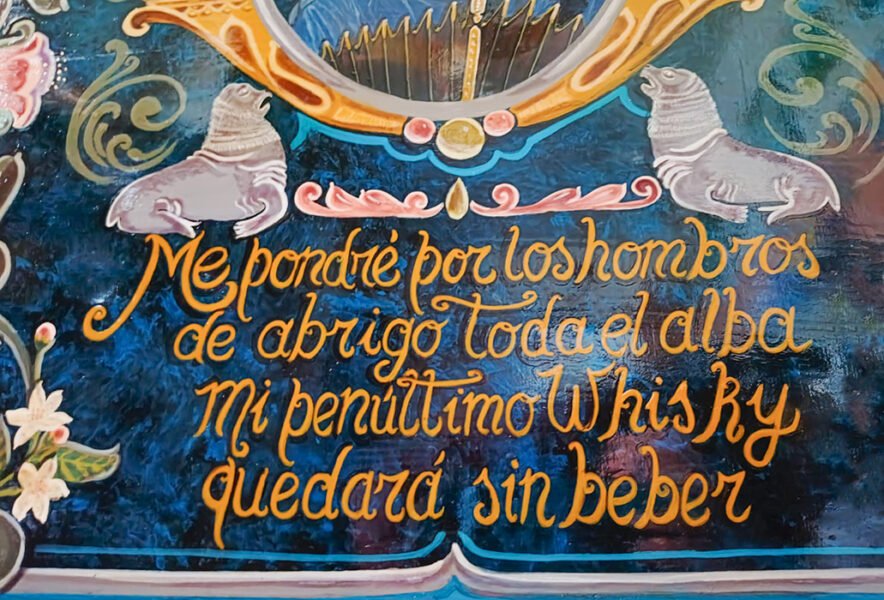 Me pondré por los hombros
de abrigo toda el alba
Mi penúltimo Whisky
quedará sin beber